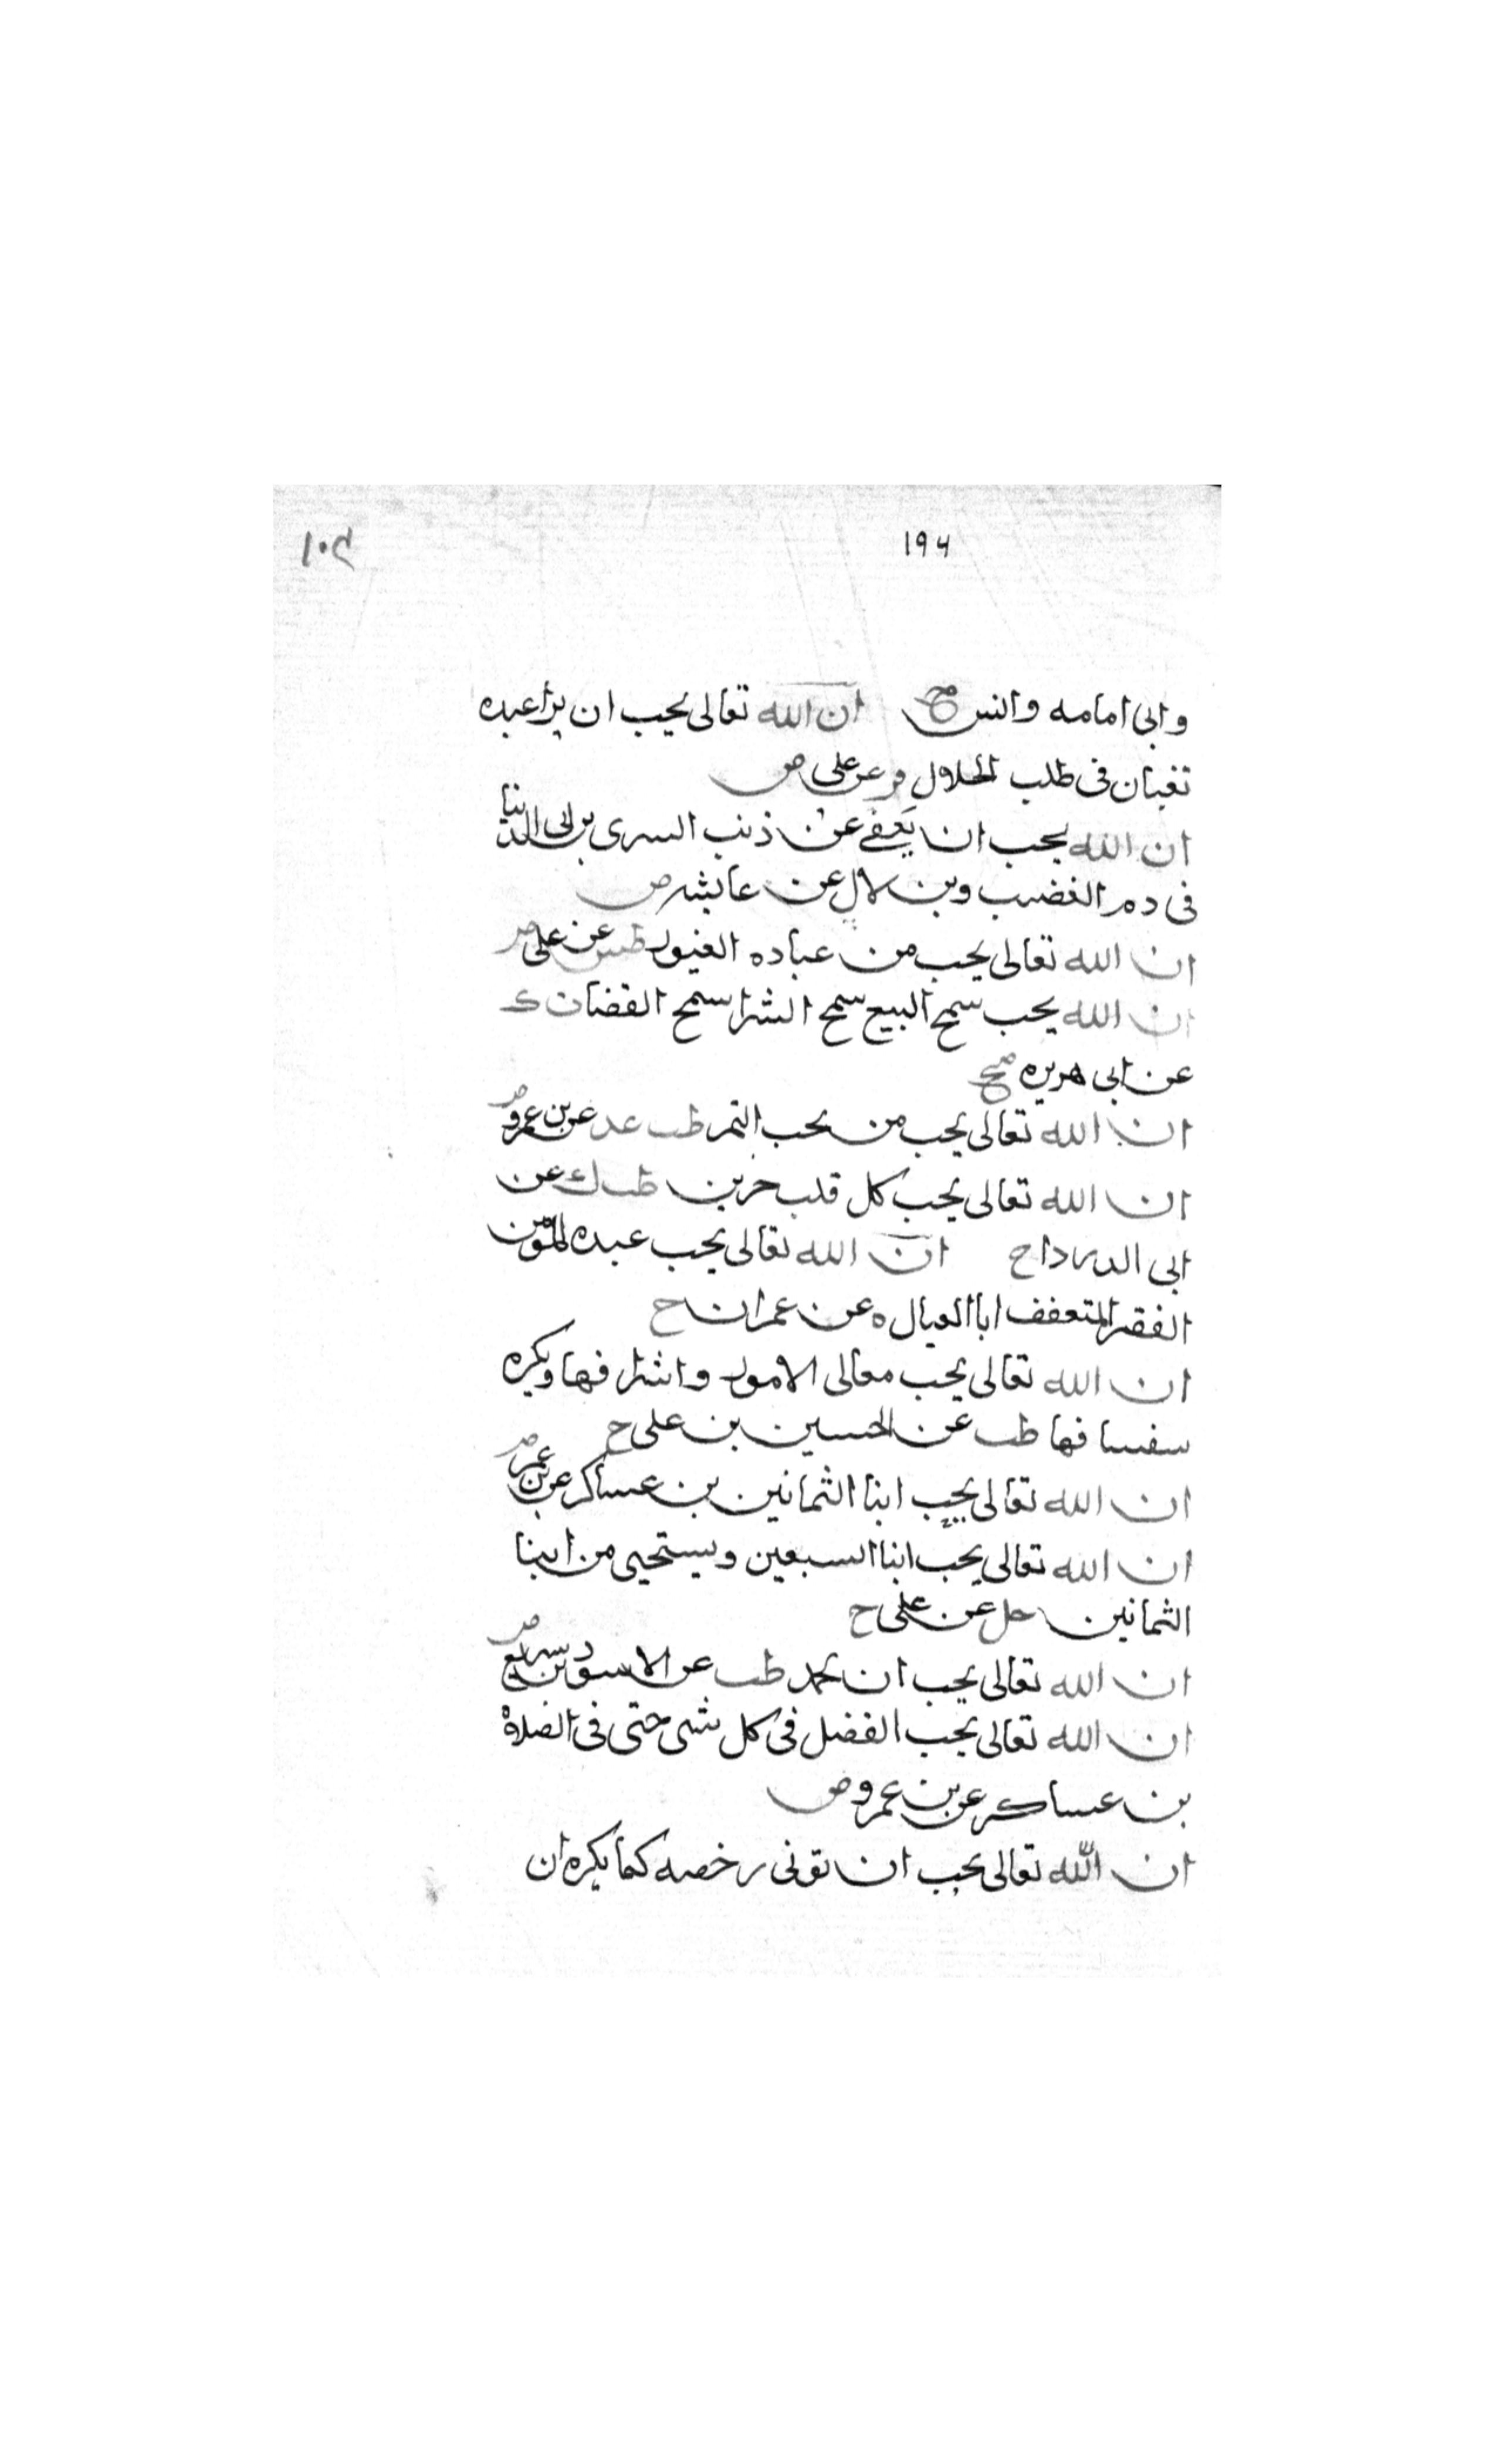 ١٩٧ ١٠٩
وابى امامه وانس صح ان الله تعالى يحب ان يرا عبده
تعبان فى طلب الحلال فر عن على ض
ان الله يحب ان يعفى عن ذنب السرى بن ابى الدنيا
فى دم الغضب وبن لال عن عايشه ض
ان الله تعالى يحب من عباده الغيور طس عن على ض
ان الله يحب سمح البيع سمح الشرا سمح القضا ت ك
عن ابى هريره صح
ان الله تعالى يحب من يحب التمر طب عد عن بن عمرو ض
ان الله تعالى يحب كل قلب حزين طب ك عن
ابى الدردا ح ان الله تعالى يحب عبده المؤمن
الفقير المتعفف ابا العيال ه عن عمران ح
ان الله تعالى يحب معالى الامور واشرافها ويكره
سفسافها طب عن الحسين بن على ح
ان الله تعالى يحب ابنا الثمانين بن عساكر عن بن عمر ض
ان الله تعالى يحب ابنا السبعين ويستحيى من ابنا
الثمانين حل عن على ح
ان الله تعالى يحب ان يحمد طب عن الاسود بن سريع ض
ان الله تعالى يحب الفضل فى كل شى حتى فى الصلاة
بن عساكر عن بن عمرو ض
ان الله تعالى يحب ان توتى رخصه كما يكره ان